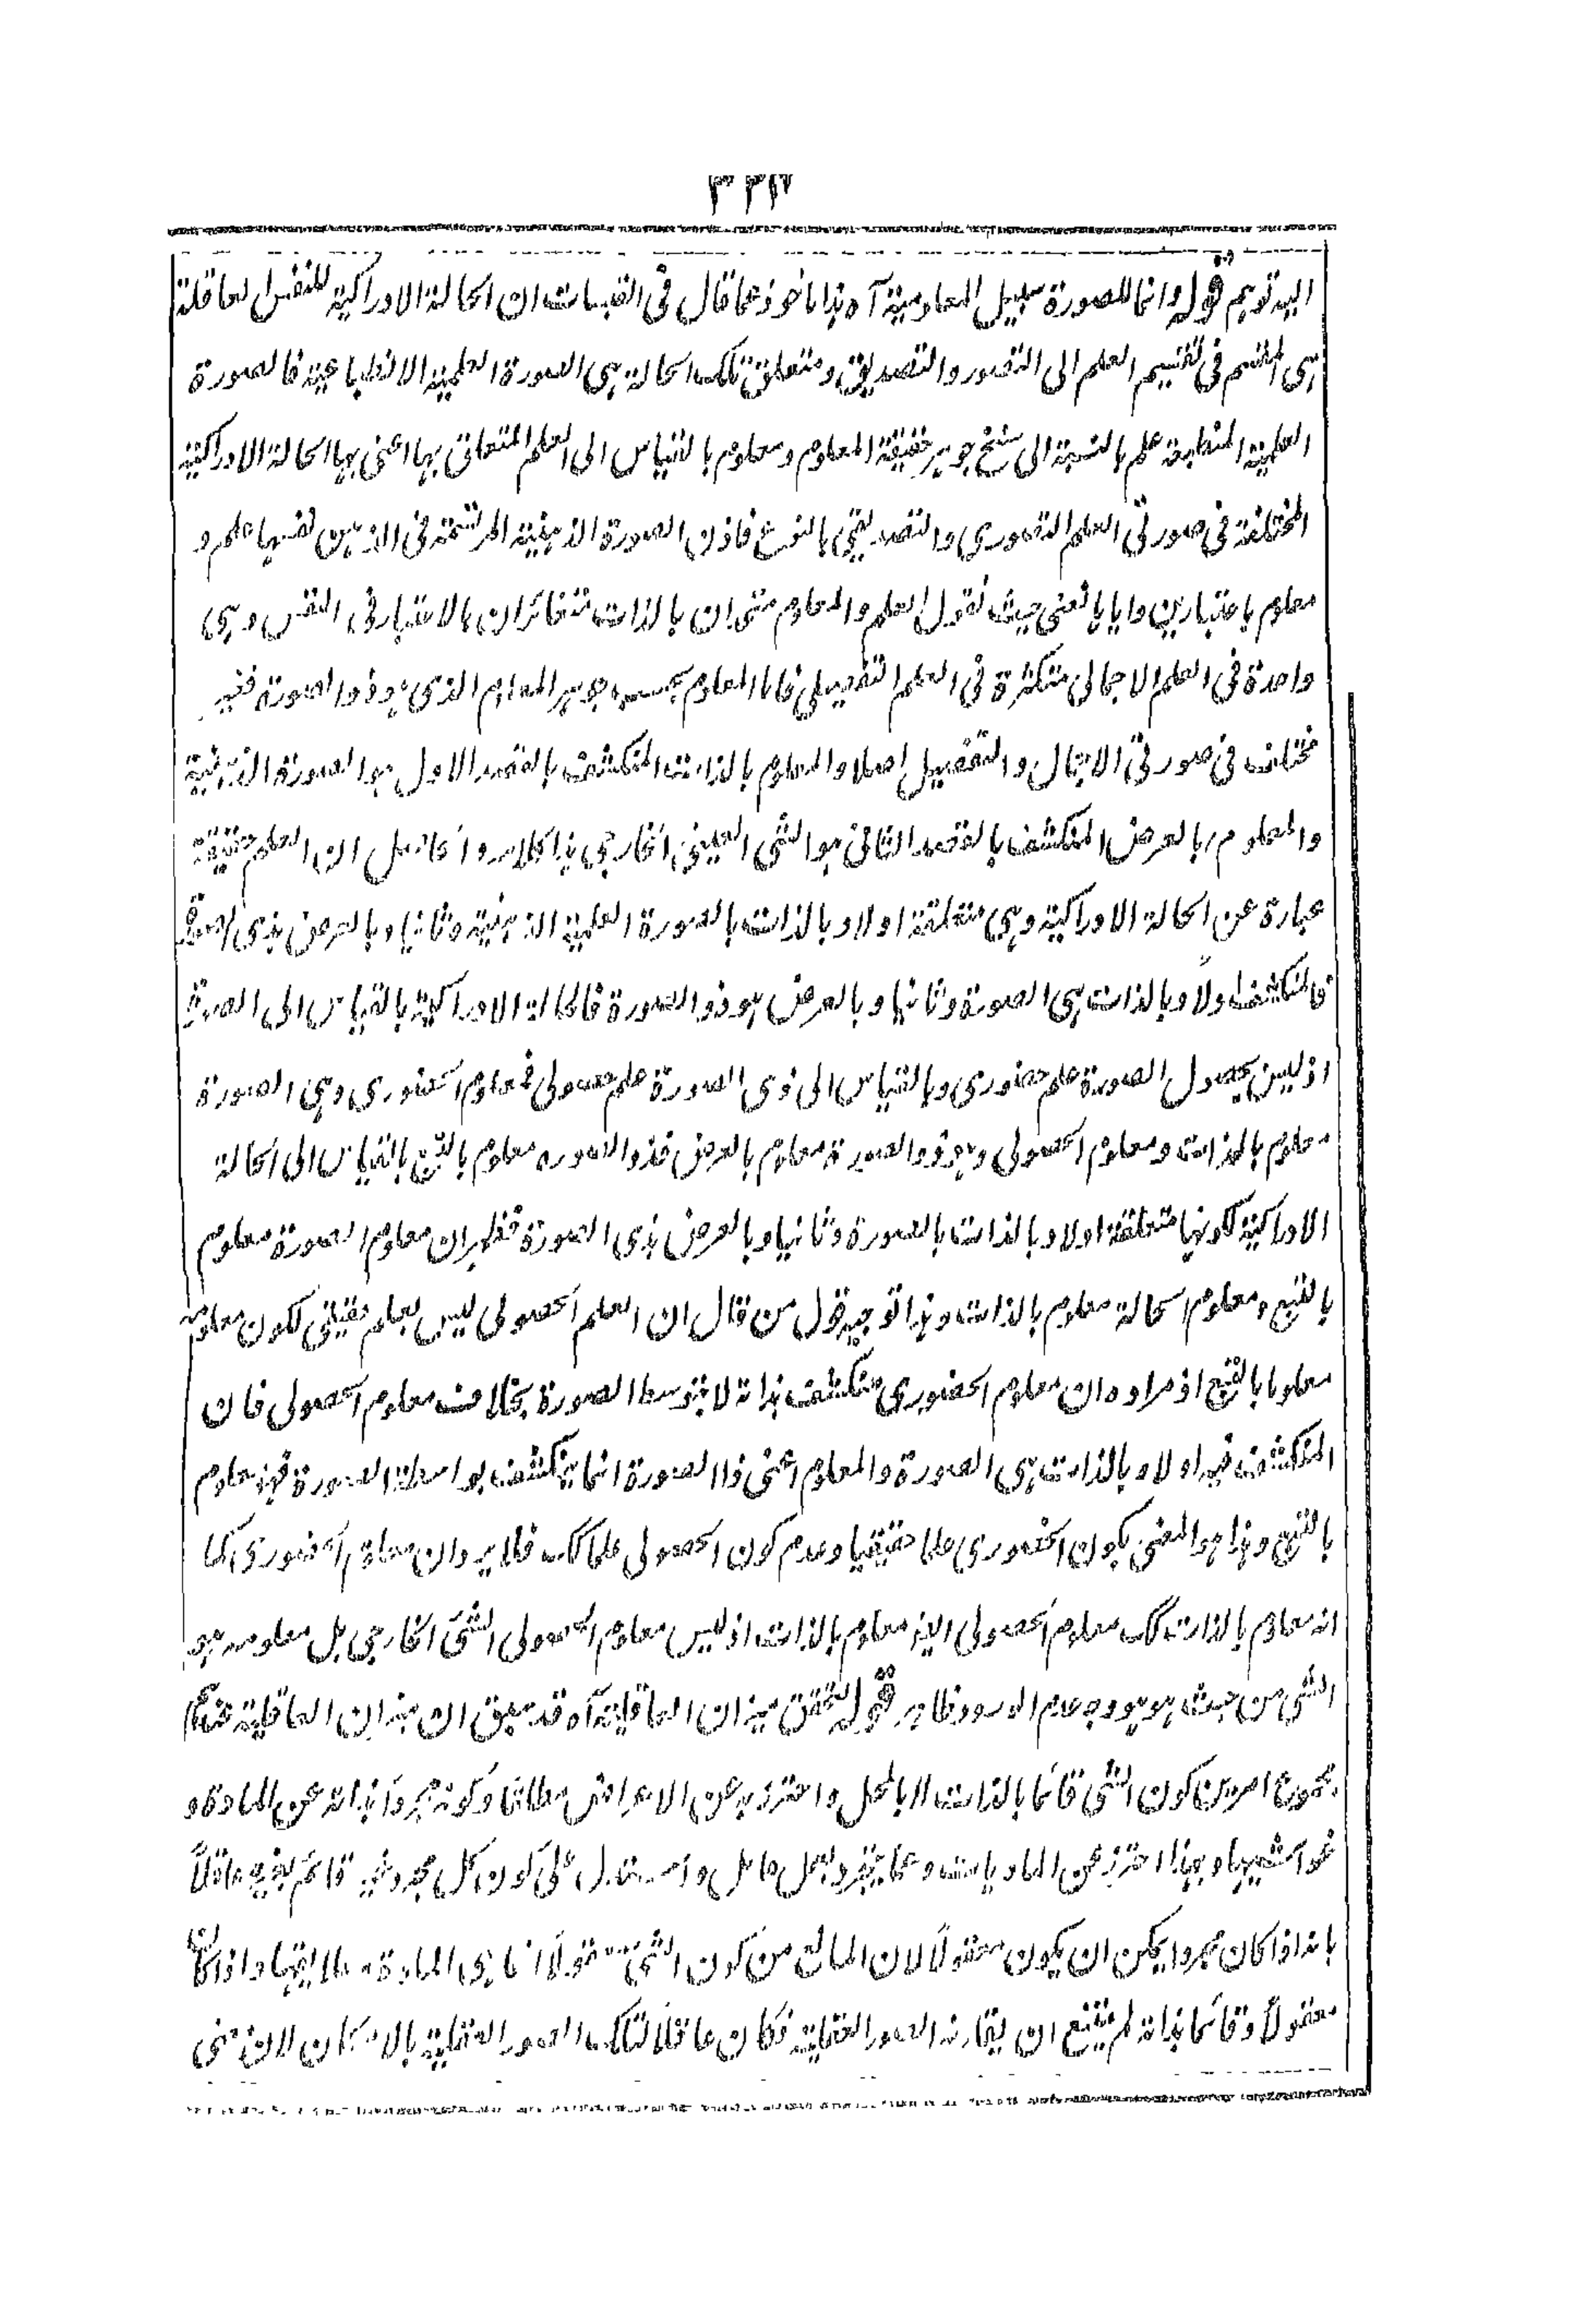 ٣٣٢
اليه تويم قوله وانما للصورة سبيل المعلومية آه هذا ماخوذ مما قال فى القبسات ان الحالة الادراكية للنفس العاقلة
هى المقسم فى تقسيم العلم الى التصور والتصديق ومتعلق تلك الحالة هى الصورة العلمية الانطباعية فالصورة
العلمية المنطبعة علم بالنسبة الى سنخ جوهر حقيقة المعلوم ومعلوم بالقياس الى العلم المتعلق بها اعنى بها الحالة الادراكية
المختلفة فى صورتى العلم التصورى والتصديقى بالنوع فاذن الصورة الذهنية المرتسمة فى الذهن نفسها علم و
معلوم باعتبارين واياها نعنى حيث نقول العلم والمعلوم متحدان بالذات متغائران بالاعتبار فى النفس وهى
واحدة فى العلم الاجمالى متكثرة فى العلم التفصيلى فاما المعلوم بحسب جوهر المعلوم الذى هو ذو الصورة فغير
مختلف فى صورتى الاجمال والتفصيل اصلا والمعلوم بالذات المنكشف بالقصد الاول هو الصورة الذهنية
والمعلوم بالعرض المنكشف بالقصد الثانى هو الشى العينى الخارجى هذا كلامه والحاصل ان العلم حقيقة
عبارة عن الحالة الادراكية وهى متعلقة اولا وبالذات بالصورة العلمية الذهنية وثانيا وبالعرض بذى الصورة
فالمنكشف اولاً وبالذات هى الصورة وثانيا وبالعرض هو ذو الصورة فالحالة الادراكية بالقياس الى الصورة
اذ ليس بحصول الصورة علم حضورى وبالقياس الى ذى الصورة علم حصولى فمعلوم الحضورى وهى الصورة
معلوم بالذات ومعلوم الحصولى وهو ذو الصورة معلوم بالعرض فذو الصوره معلوم بالتبع بالقياس الى الحالة
الادراكية لكونها متعلقة اولا وبالذات بالصورة وثانيا وبالعرض بذى الصورة فظهر ان معلوم الصورة معلوم
بالتبع ومعلوم الحالة معلوم بالذات وهذا توجيه قول من قال ان العلم الحصولى ليس بعلم حقيقى لكون معلومه
معلوما بالتبع اذ مراده ان معلوم الحضورى منكشف بذاته لا بتوسط الصورة بخلاف معلوم الحصولى فان
المنكشف فيه اولا وبالذات هى الصورة والمعلوم اعنى ذا الصورة انما ينكشف بواسطة الصورة فهو معلوم
بالتبع وهذا هو المعنى بكون الحضورى علما حقيقيا وعدم كون الحصولى علما كك فلا يرد ان معلوم الحضورى كما
انه معلوم بالذات كك معلوم الحصولى ايضا معلوم بالذات اذ ليس معلوم الحصولى الشئ الخارجى بل معلومه هو
الشى من حيث هو هو وجه عدم الورود ظاهر قوله لتحقق ميزان العاقلية آه قد سبق ان ميزان العاقلية عندهم
مجموع امرين كون الشى قائما بالذات لا بالمحل واحترز به عن الاعراض مطلقا وكونه مجرداً بذاته عن المادة و
غواشيها وبهذا احترز عن الماديات وعما يتجرد بعمل عامل واستدل على كون كل مجرد قائم بنفسه عاقلاً
بانه اذا كان مجردا يمكن ان يكون معقولاً لان المانع من كون الشئ معقولاً انما هى المادة وعلائقها واذا كان
معقولاً وقائما بذاته لم يمتنع ان يقارنه الصور العقلية فكان عاقلا لتلك الصور العقلية بالامكان لان معنى